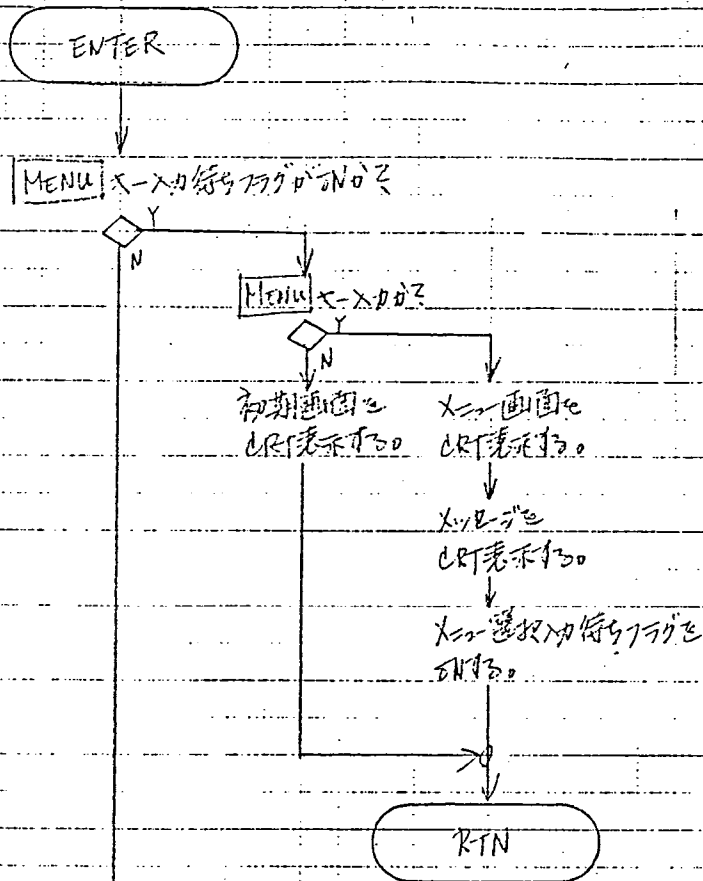 ENTER
MENU キー入力待ちフラグがONか?
Y
N
MENU キー入力か?
Y
N
初期画面を
CRT表示する。
メニュー画面を
CRT表示する。
メッセージを
CRT表示する。
メニュー選択入力待ちフラグを
ONする。
RTN